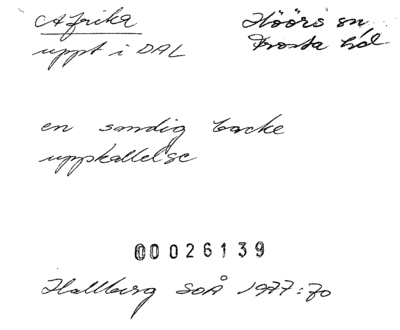 Afrika
uppt i DAL
Höörs sn
Frosta hd
en sandig backe
uppkallelse
00026139
Hallberg SOÅ 1977:70